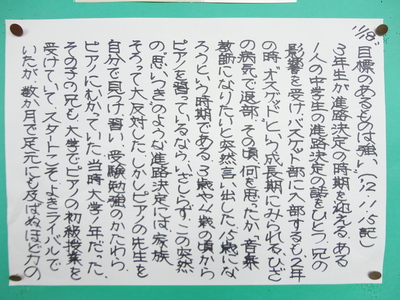 1/18 目標のあるものは強い（12.1.15記）
３年生が進路決定の時期を迎える。ある
１人の中学生の進路決定の話をひとつ。兄の
影響を受けバスケット部に入部するも２年
の時、オスゲットという成長期にみられるひざ
の病気で退部。その頃、何を思ったか「音楽
教師になりたい」と突然言い出した。１５歳にな
ろうという時期である。３歳や４歳の頃から
ピアノを習っているならいざしらず。この突然
の、思いつきのような進路決定には、家族
そろって大反対した。しかし、ピアノの先生を
自分で見つけ習い、受験勉強のかたわら、
ピアノにむかっていた。当時、大学１年だった
その子の兄も大学でピアノの初級授業を
受けていて、スタートこそよきライバルで
いたが、数か月で足元にも及ばぬほど力の